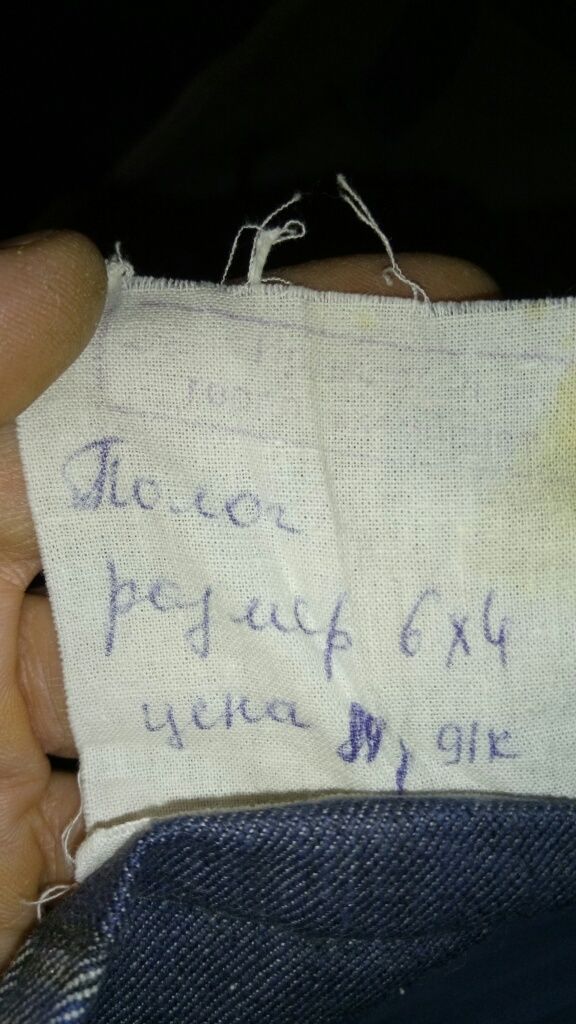 Полог
размер 6х4
цена , 91к